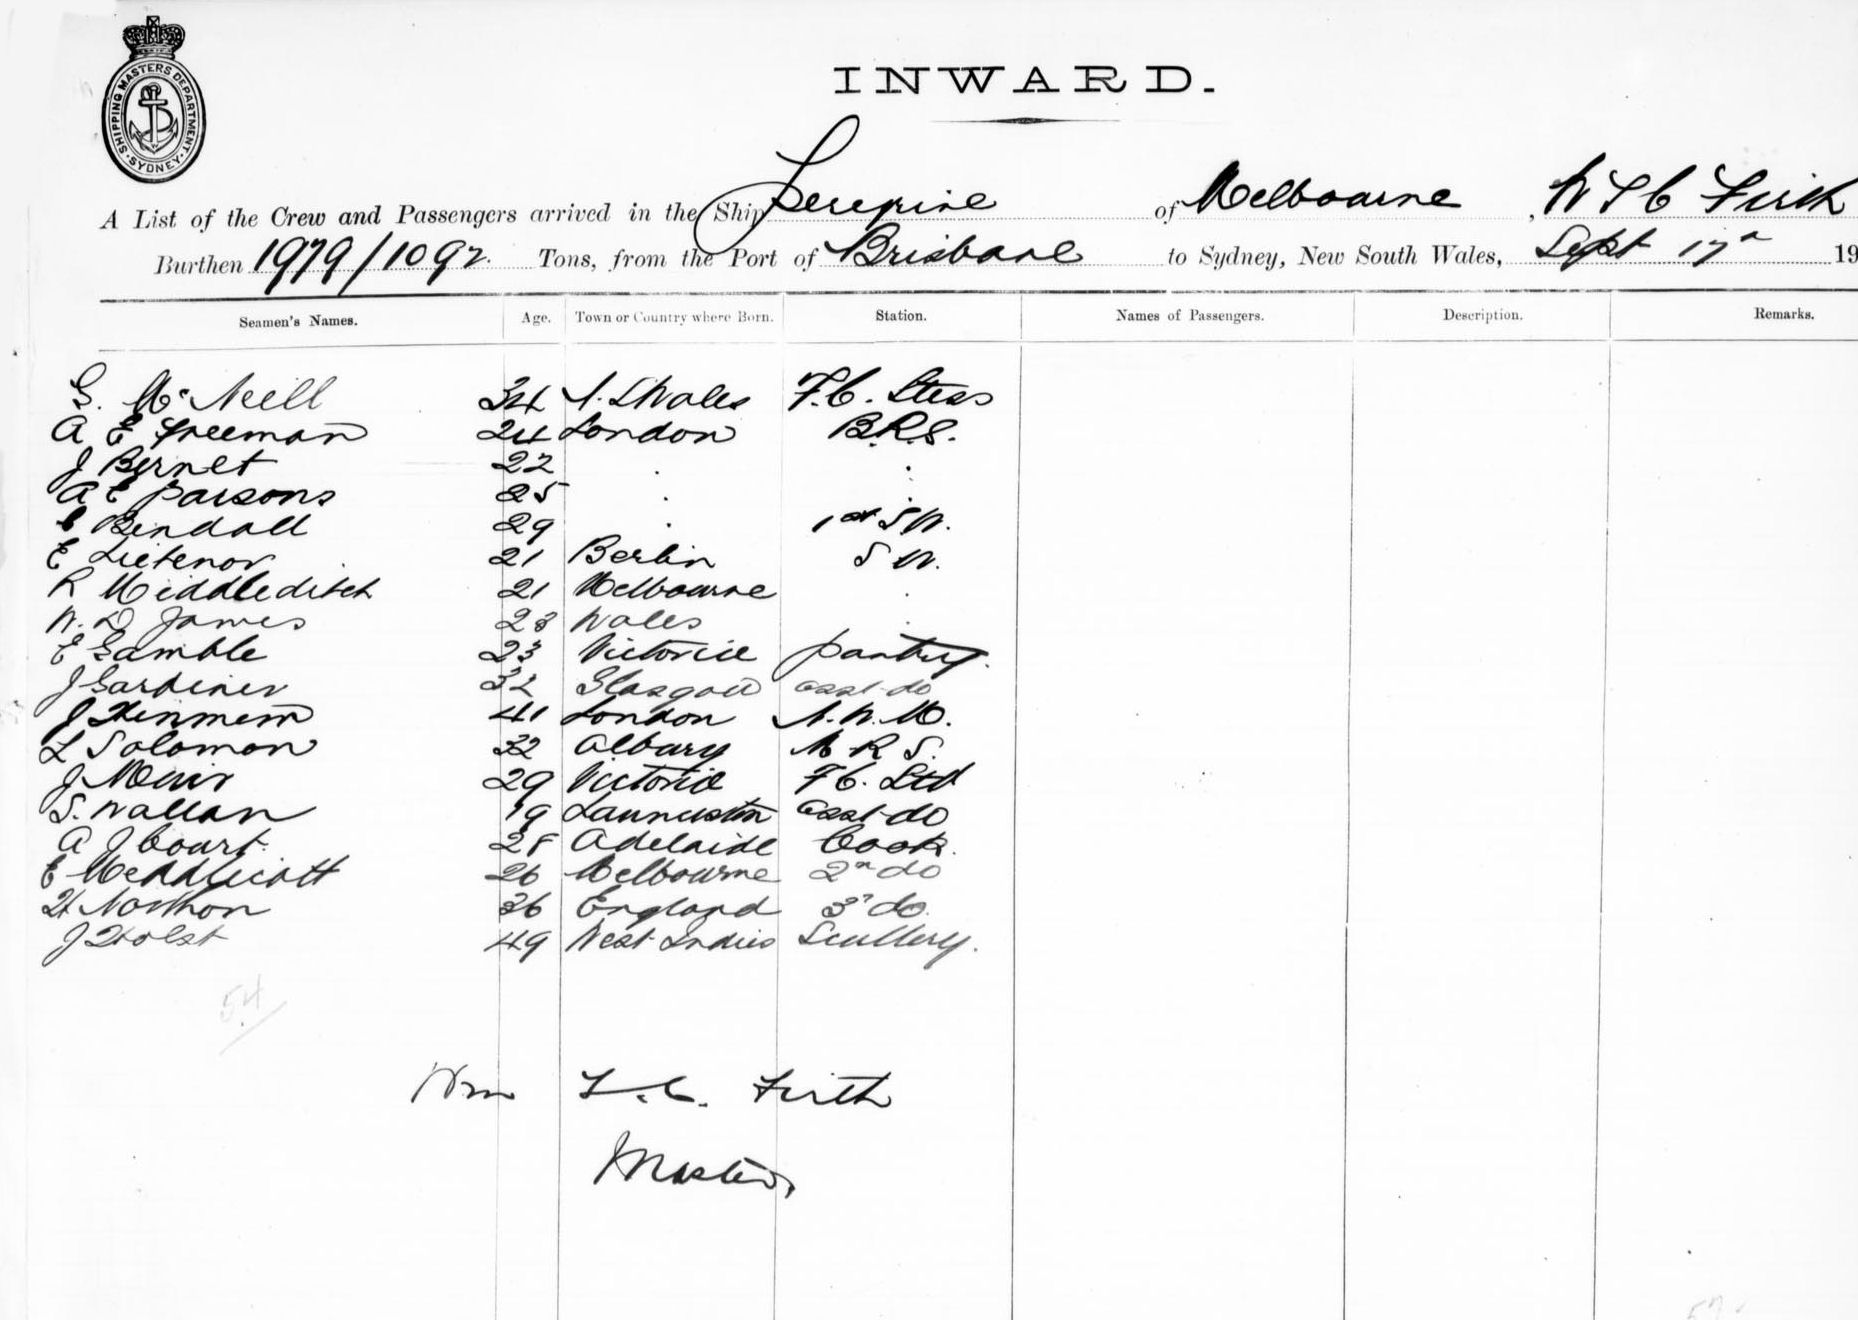 SHIPPING MASTERS DEPARTMENT
SYDNEY
INWARD.
A List of the Crew and Passengers arrived in the Ship Peregrine of Melbourne, W T C Firth
Burthen 1979/1092. Tons, from the Port of Brisbane to Sydney, New South Wales, Sept 17th 19
Seamen's Names. Age. Town or Country where Born. Station. Names of Passengers. Description. Remarks.
G. McNeill 34 N. S Wales F.C. Stess
A E Freeman 24 London B.R.S.
J Bernet 22 . .
A E Parsons 25 . .
Bendall 29 . 1st S W.
E 21 Berlin S W.
R Middleditch 21 Melbourne .
W. D James 23 Wales .
E Gamble 23 Victoria Pantry.
J Gardiner 32 Glasgow asst do
J 41 London N. W. M.
L Solomon 32 Albury M R S.
J Muir 29 Victoria F C. Std
S. Wallan 19 Launceston asst do
A J Court. 28 Adelaide Cook.
E Meddlicott 26 Melbourne 2nd do
H 36 England 3rd do.
J Holst 49 West Indies Scullery.
54
Wm T. C. Firth
Master,